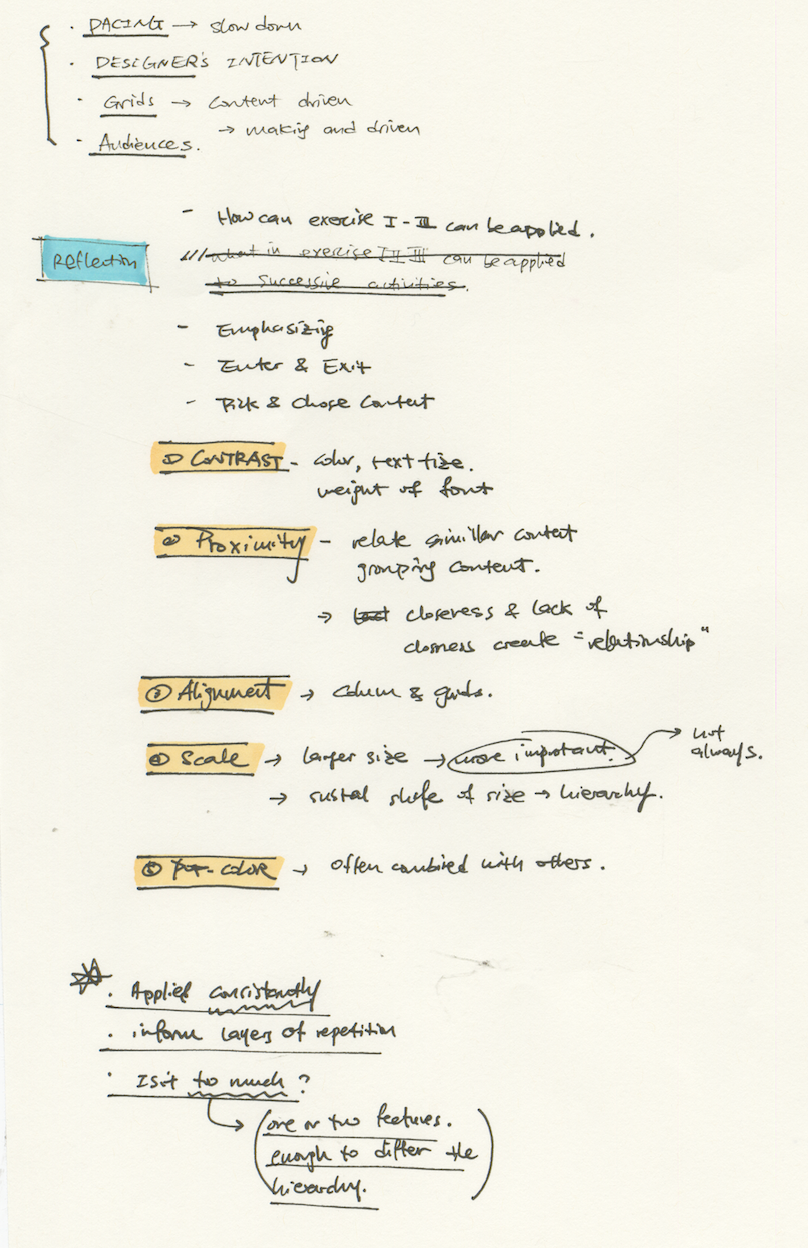 · PACING → slow down
· DESIGNER'S INTENTION
· Grids → Content driven
→ making and driven
· Audiences.
- How can exercise I-III can be applied.
Reflection
what in exercise I II III can be applied
to successive activities.
- Emphasizing
- Enter & Exit
- Pick & Chose Content
① CONTRAST - color, text size.
weight of font
② Proximity - relate similar content
grouping content.
→ closeness & lack of
closness create "relationship"
③ Alignment → Colum & grids.
④ Scale → larger size → more important. → not
always.
→ of size → hierarchy.
⑤ color → often combined with others.
· Applied consistantly
· inform layers of repetition
· Is it to much?
(one or two features.
enough to differ the
hierarchy.)